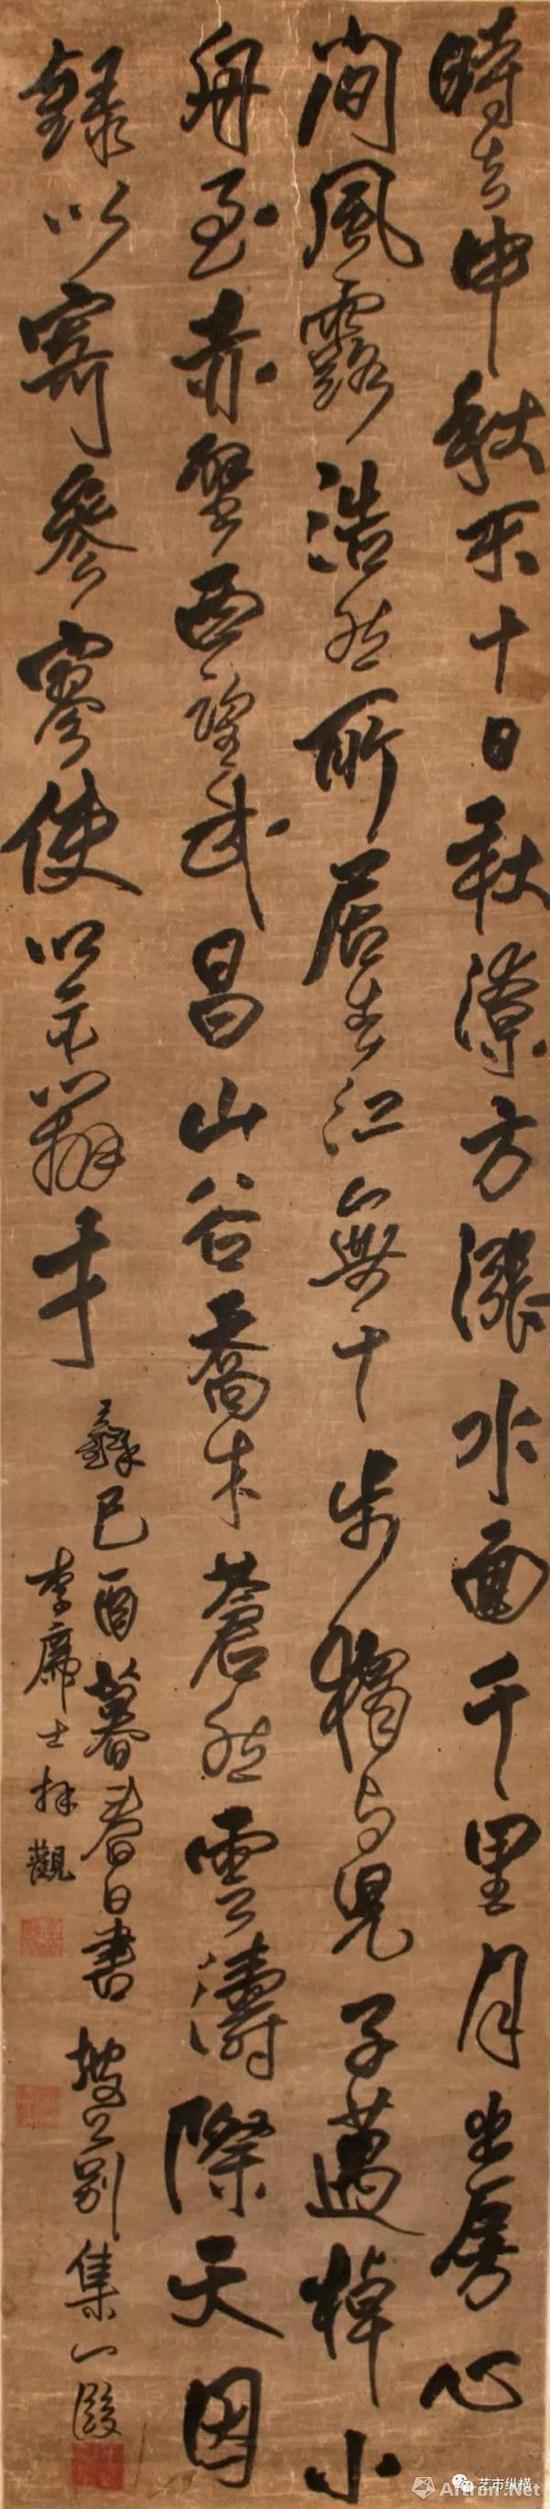 時去中秋不十日秋潦方漲水面千里月出房心
間風露浩然所居去江無十步獨與兒子邁棹小
舟至赤壁西望武昌山谷喬木蒼然雲濤際天因
錄以寄參寥使以示辯才
己酉暮春日書坡公別集一段
李士觀
艺市纵横
Artron.Net